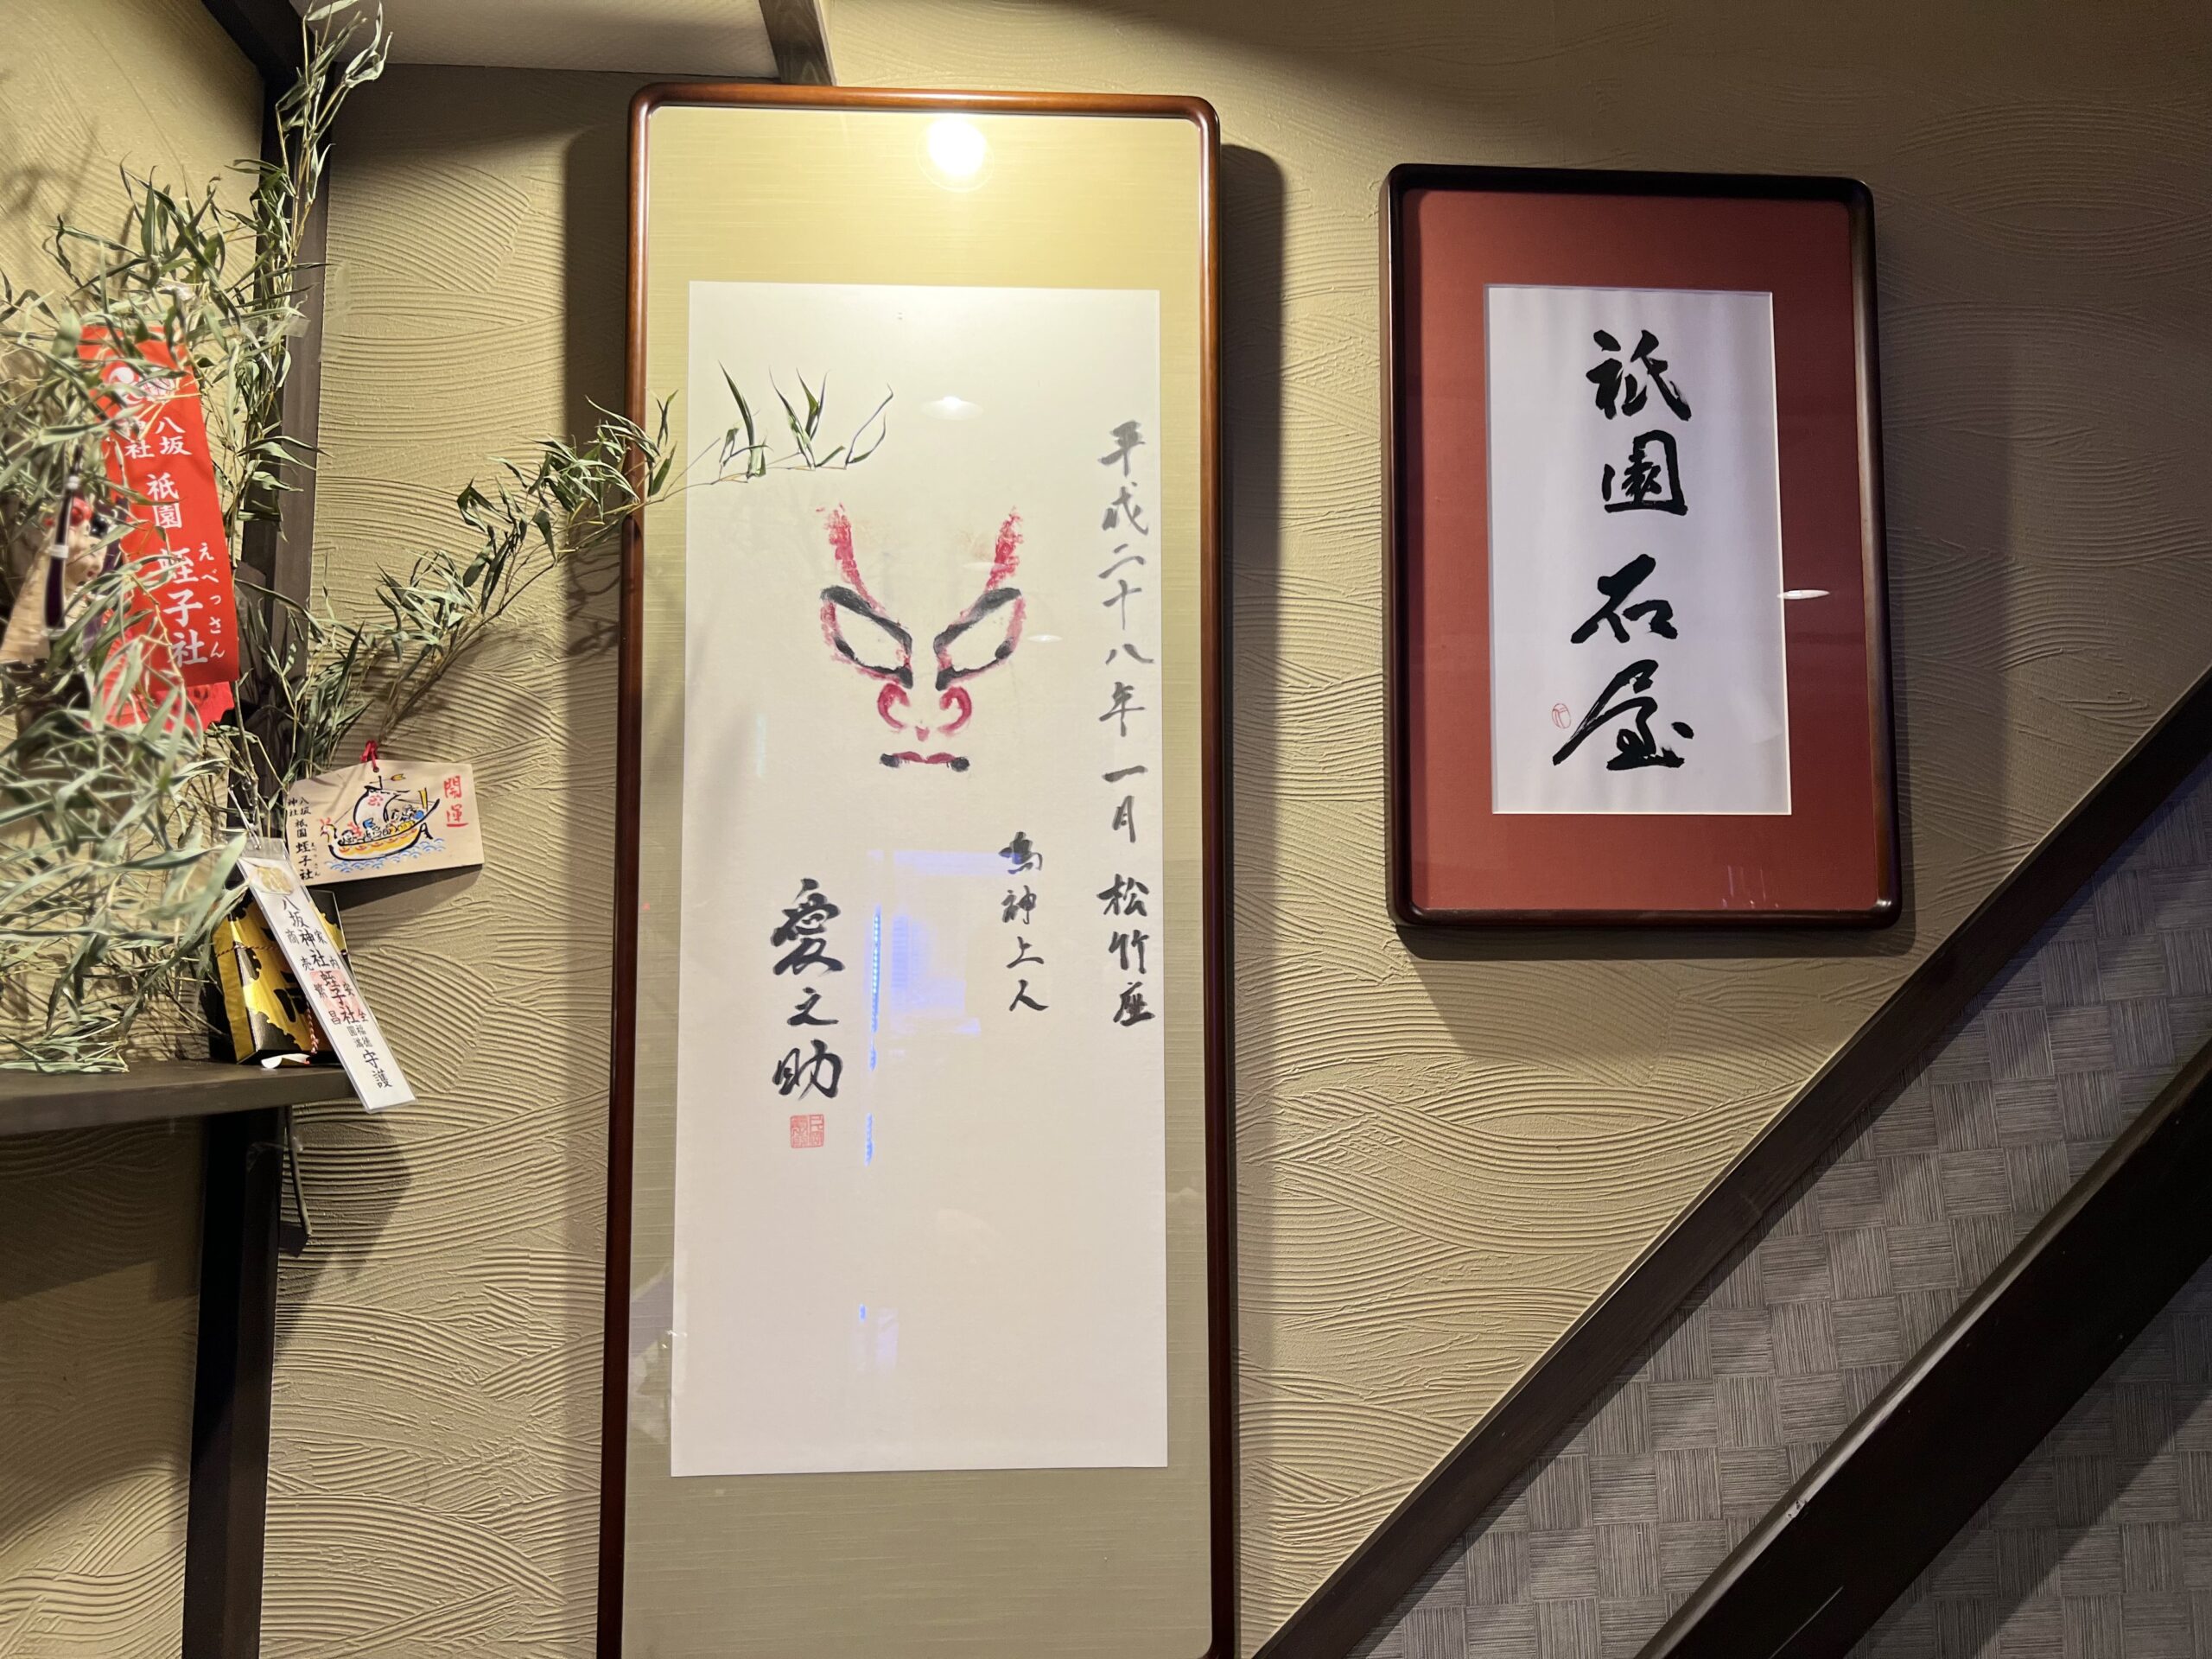 祇園 石屋
平成二十八年 一月 松竹座
鳴神上人
愛之助
八坂
神社
祇園
蛭子社
えべっさん
開運
八坂
神社
祇園 蛭子社
八坂神社 蛭子社 守護
家内安全
商売繁昌
福徳
円満